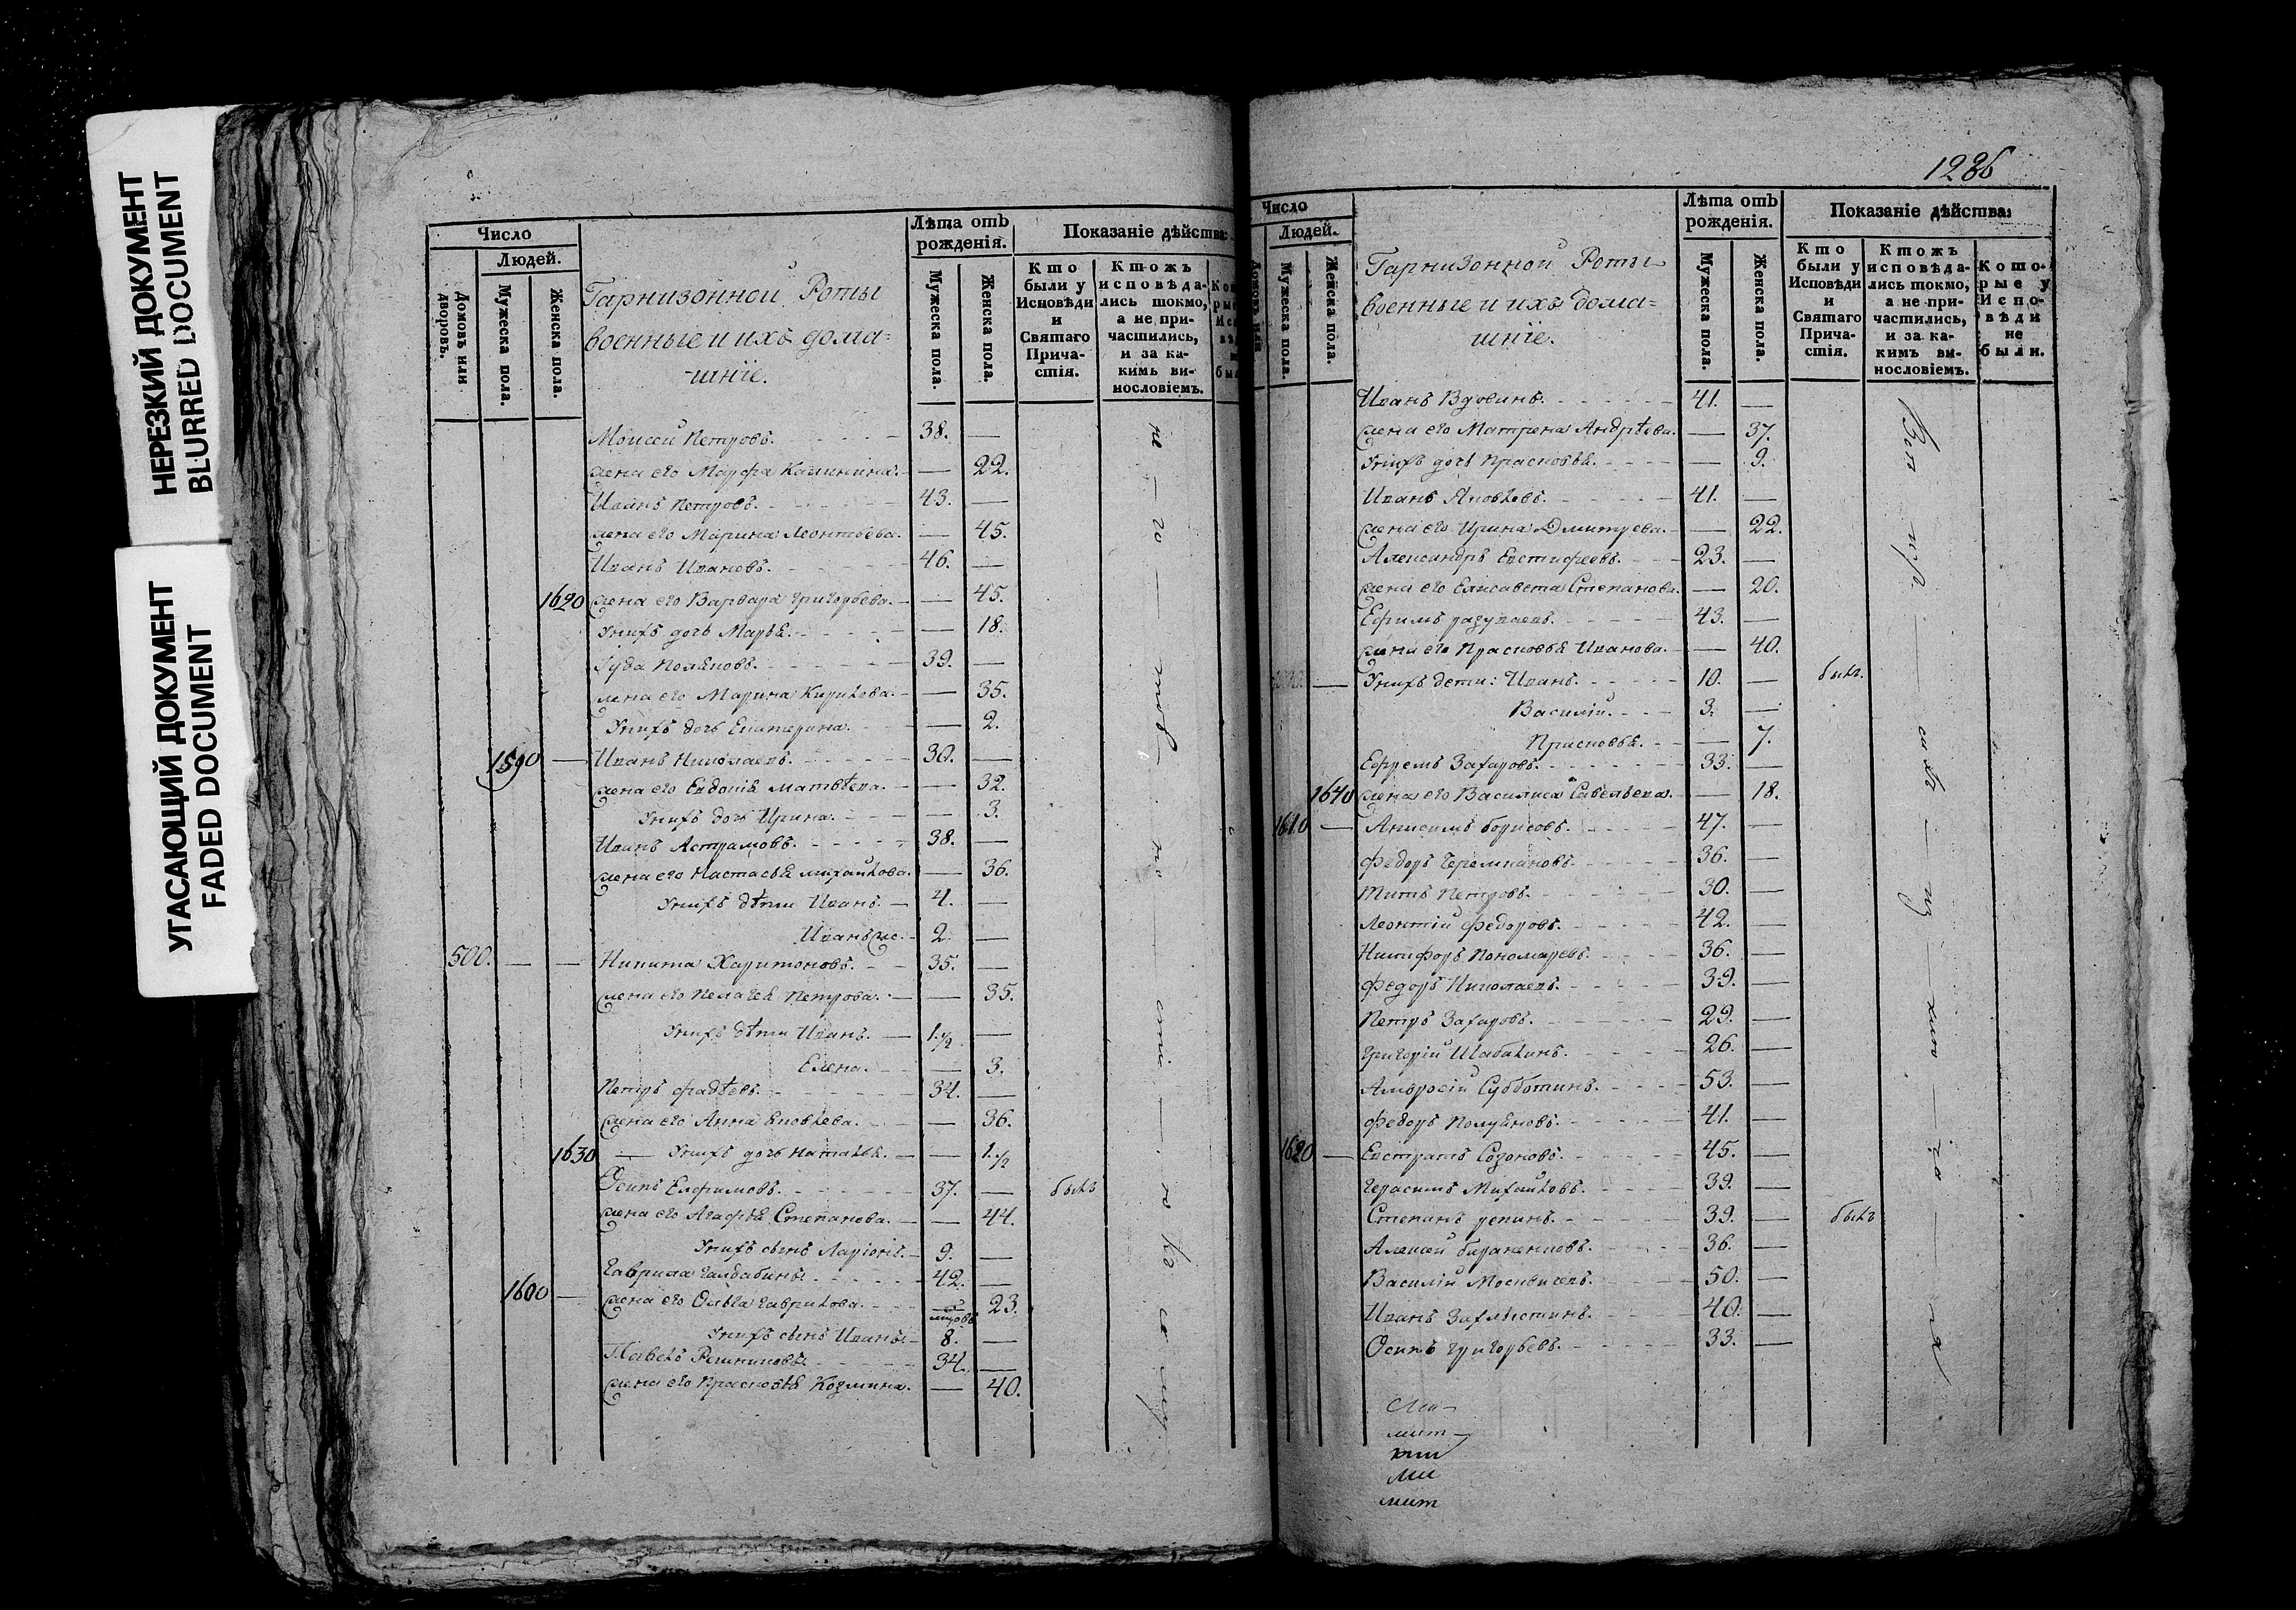 НЕРЕЗКИЙ ДОКУМЕНТ
BLURRED DOCUMENT
УГАСАЮЩИЙ ДОКУМЕНТ
FADED DOCUMENT
Число
Людей.
Домовъ или дворовъ.
Мужеска пола.
Женска пола.
Гарнизонной Роты
военные и ихъ дома=
шнїе.
Лѣта отъ рожденія.
Мужеска пола.
Женска пола.
Показаніе дѣйства:
Кто были у Исповѣди и Святаго Прича-стія.
Ктожъ исповѣда-лись токмо, а не при-частились, и за ка-кимъ ви-нословіемъ.
Моисей Петровъ. 38. —
жена его Марфа Калинина. — 22.
Иванъ Петровъ. 43. —
жена его Марина Леонтьева. — 45.
Иванъ Ивановъ. 46. —
1620 жена его Варвара Григорьева. — 45.
Унихъ дочь Марья. — 18.
39. —
жена его Марина Кирилова. — 35.
Унихъ дочь Екатерина. — 2.
1590 — Иванъ Николаевъ. 30. —
жена его Евдокія Матвѣева. — 32.
Унихъ дочь Ирина. — 3.
Иванъ Астрамовъ. 38. —
жена его Настасья Михайлова. — 36.
Унихъ дѣти Иванъ. 4. —
Иванъ же. 2. —
500. — — Никита Харитоновъ. 35. —
жена его Пелагея Петрова. — 35.
Унихъ дѣти Иванъ. 1½ —
Елена. — 3.
Петръ Фадѣевъ. 34. —
жена его Анна Яковлева. — 36.
1630 — Унихъ дочь Наталья. — 1½
Осипъ Ефимовъ. 37. — былъ
жена его Агафья Степанова. — 44.
Унихъ сынъ Ларіонъ. 9. —
Гаврила 42. —
1600 — жена его Ольга Гаврилова. 23.
Унихъ сынъ Иванъ. 8. —
Павелъ Решниковъ. 34. —
жена его Прасковья Козмина. — 40.
1236
Число
Людей.
Мужеска пола.
Женска пола.
Гарнизонной Роты
военные и ихъ дома=
шнїе.
Лѣта отъ рожденія.
Мужеска пола.
Женска пола.
Показаніе дѣйства:
Кто были у Исповѣди и Святаго Прича-стія.
Ктожъ исповѣда-лись токмо, а не при-частились, и за ка-кимъ ви-нословіемъ.
Кото-рые у Испо-вѣди не были.
Иванъ Вдовинъ. 41. —
жена его Матрена Андрѣева. — 37.
Унихъ дочь Прасковья. — 9.
Иванъ Яковлевъ. 41. —
жена его Ирина Дмитрева. — 22.
Александръ Евстифеевъ. 23. —
жена его Елисавета Степанова. — 20.
Ефимъ 43. —
жена его Прасковья Иванова. — 40.
Унихъ дети: Иванъ. 10. — былъ
Василій. 3. —
Прасковья. — 7.
Ефремъ Захаровъ. 33. —
1640 жена его Василиса Савельева. — 18.
1610 — Анисимъ Борисовъ. 47. —
Федоръ Черемпановъ. 36. —
Титъ Петровъ. 30. —
Леонтій Федоровъ. 42. —
Никифоръ Пономаревъ. 36. —
Федоръ Николаевъ. 39. —
Петръ Захаровъ. 29. —
Григорій Шабалинъ. 26. —
Амвросій Субботинъ. 53. —
Федоръ Полуяновъ. 41. —
1620 — Евстратъ Созоновъ. 45. —
Герасимъ Михайловъ. 39. —
Степанъ Репинъ. 39. — былъ
Алексей 36. —
Василій Москвичевъ. 50. —
Иванъ 40. —
Осипъ Григорьевъ. 33. —